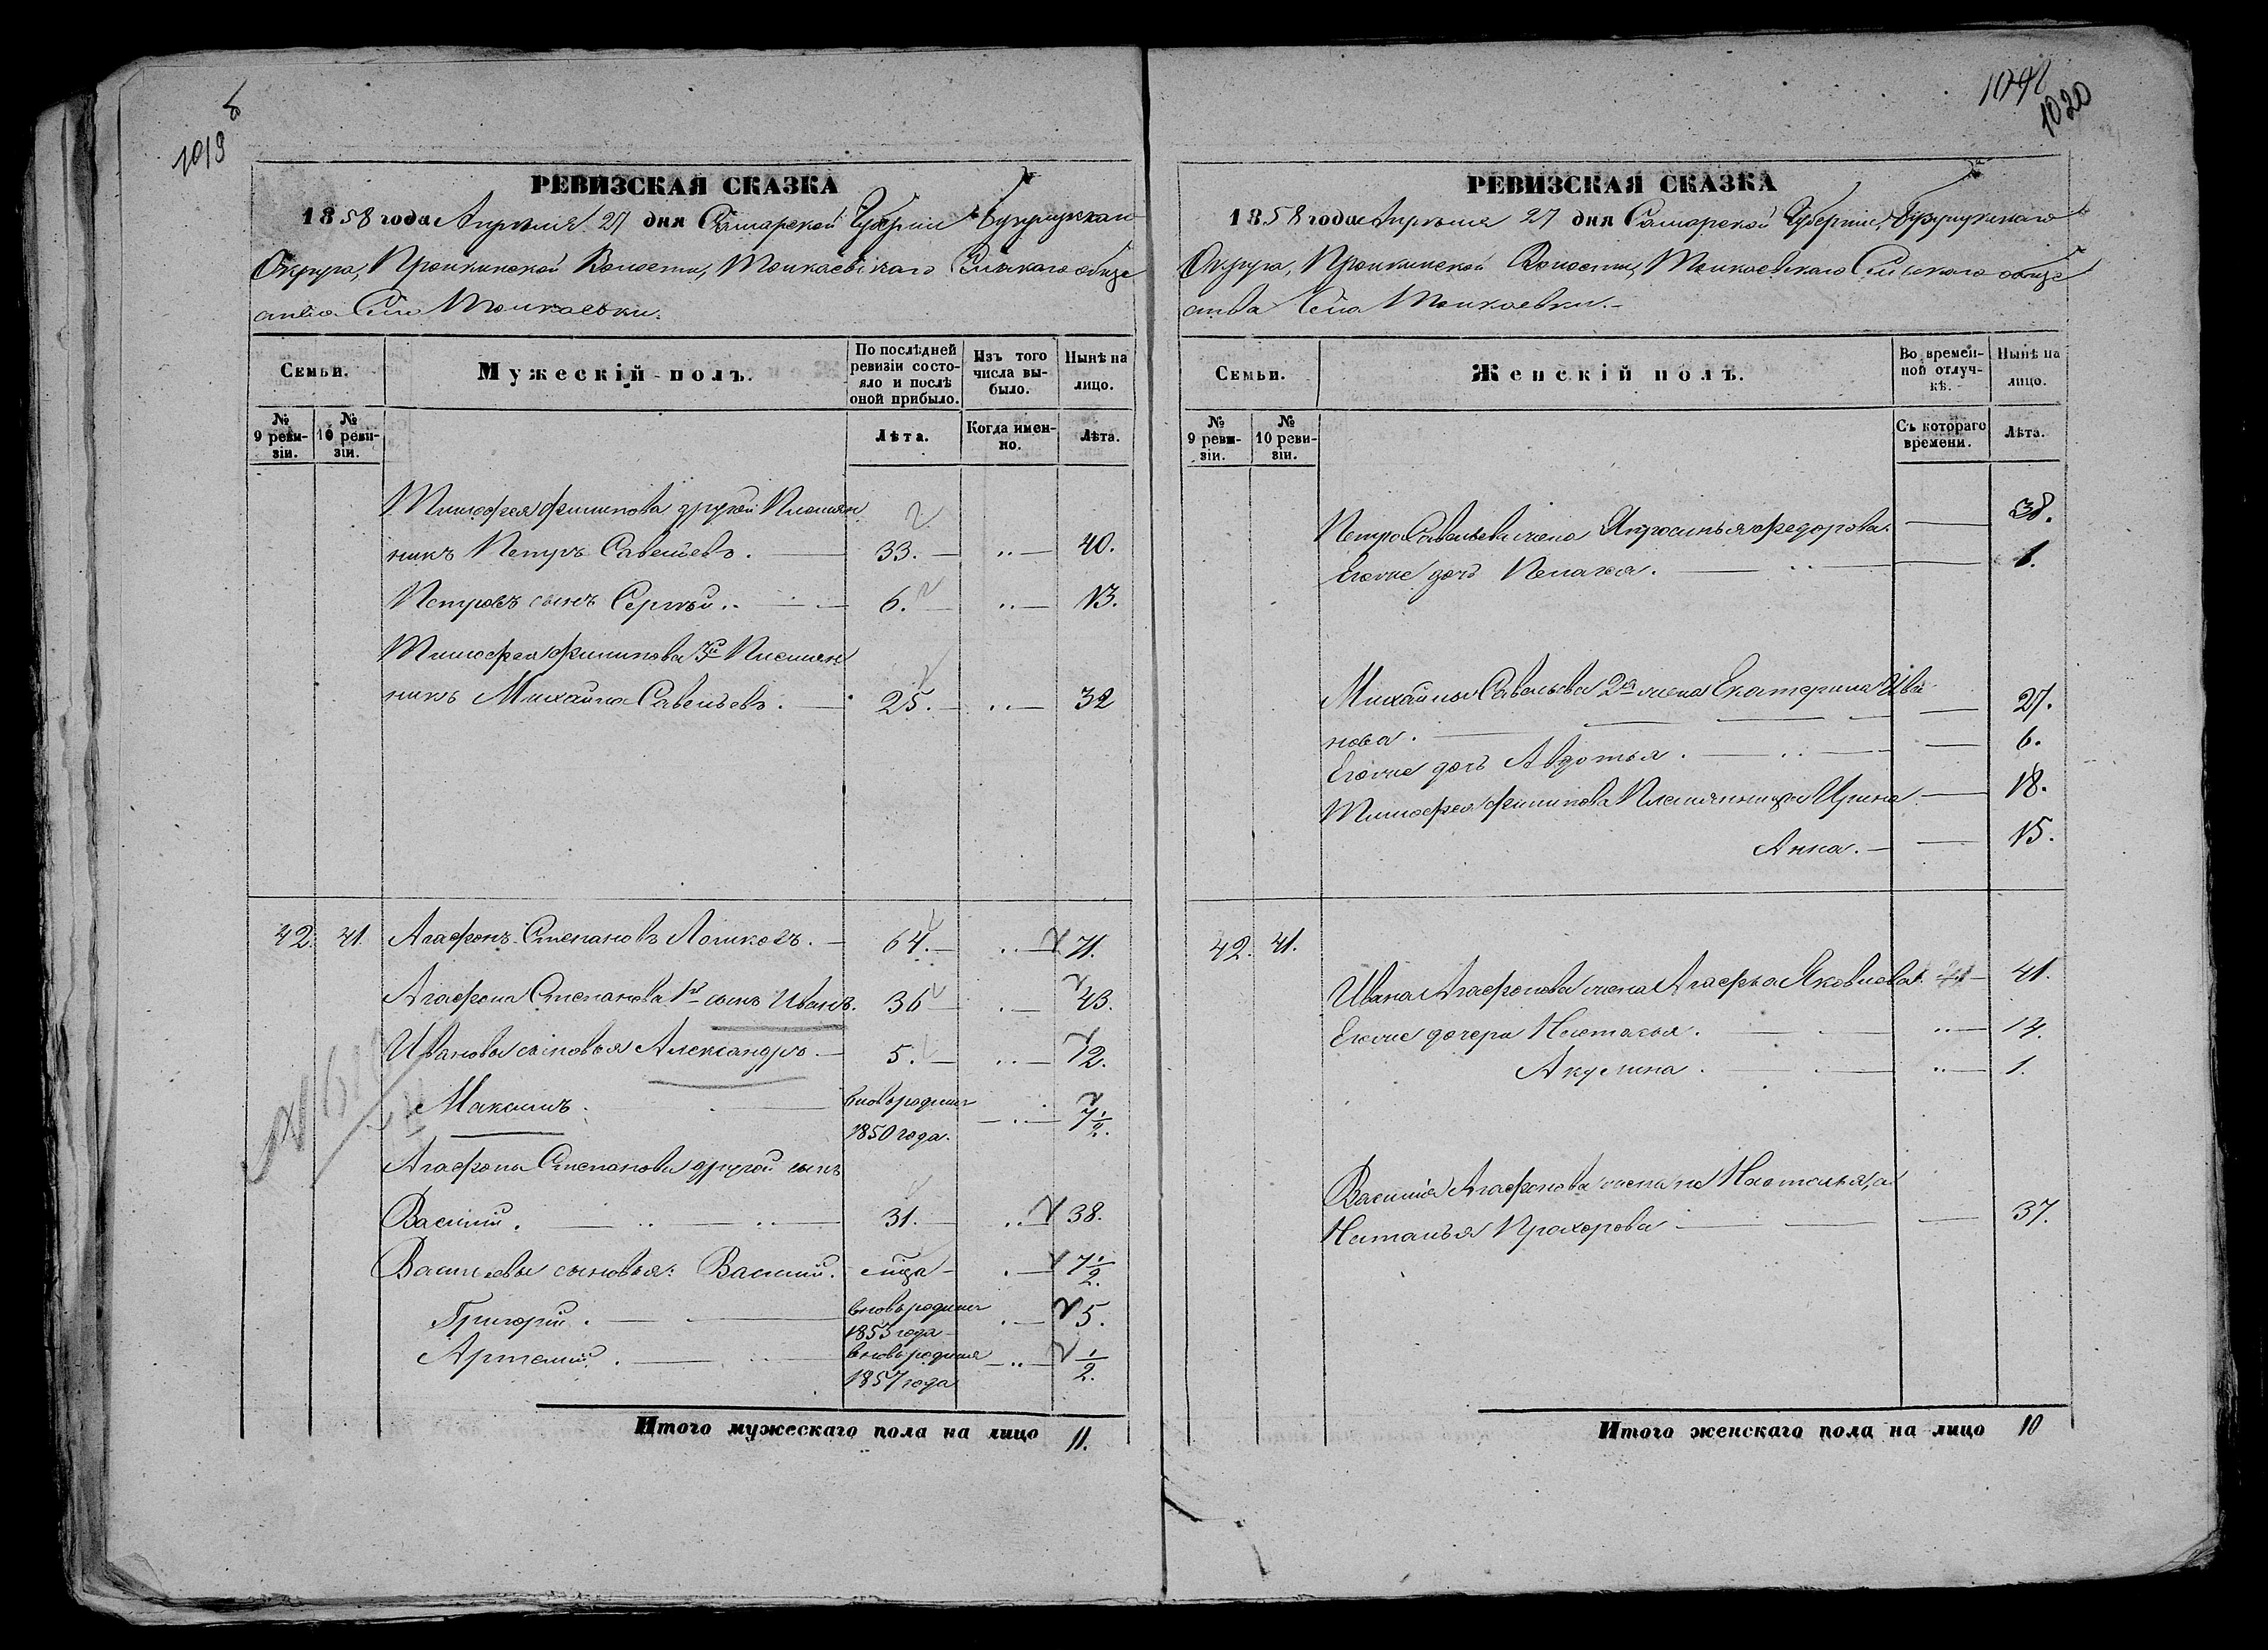 1019 об
РЕВИЗСКАЯ СКАЗКА
1858 года Апреля 27 дня Самарской Губернии Бузулукскаго
Округа, Пронкинской Волости, Толкаевскаго Сельскаго обще
ства Села Толкаевки.
Семьи.
Мужескій полъ.
По послѣдней ревизіи состояло и послѣ оной прибыло.
Изъ того числа выбыло.
Нынѣ на лицо.
№ 9 ревизіи.
№ 10 ревизіи.
Лѣта.
Когда именно.
Лѣта.
Тимофея Филипова другой Племян
никъ Петръ Савельевъ. 33. 40.
Петровъ сынъ Сергѣй. 6. 13.
Тимофея Филипова 3й Племян
никъ Михайла Савельевъ. 25. 32
42. 41. Агафонъ Степановъ 64. 71.
Агафона Степанова 1й сынъ Иванъ. 36 43.
Ивановы сыновья Александръ. 5. 12.
Максимъ. вновь родился 1850 года. 7 1/2.
Агафона Степанова другой сынъ
Василій. 31. 38.
Васильевы сыновья: Василій. 7 1/2.
Григорій. вновь родился 1853 года 5.
Артемий. вновь родился 1857 года 1/2.
Итого мужескаго пола на лицо 11.
1020
РЕВИЗСКАЯ СКАЗКА
1858 года Апреля 27 дня Самарской Губернии, Бузулукскаго
Округа, Пронкинской Волости, Толкаевскаго Сельскаго обще
ства Села Толкаевки.
Семьи.
Женскій полъ.
Во временной отлучкѣ.
Нынѣ на лицо.
№ 9 ревизіи.
№ 10 ревизіи.
Съ котораго времени.
Лѣта.
Петра Савельева жена Апросинья Федорова. 38.
Егоже дочь Пелагея. 1.
Михайлы Савельева 2я жена Екатерина Ива
нова. 27.
Егоже дочь Авдотья. 6.
Тимофея Филипова Племянницы Ирина 18.
Анна. 15.
42. 41.
Ивана Агафонова жена Агафья Яковлева 41.
Егоже дочери Настасья. 14.
Акулина. 1.
Василія Агафонова жена не Настасья, а
Наталья Прохорова 37.
Итого женскаго пола на лицо 10